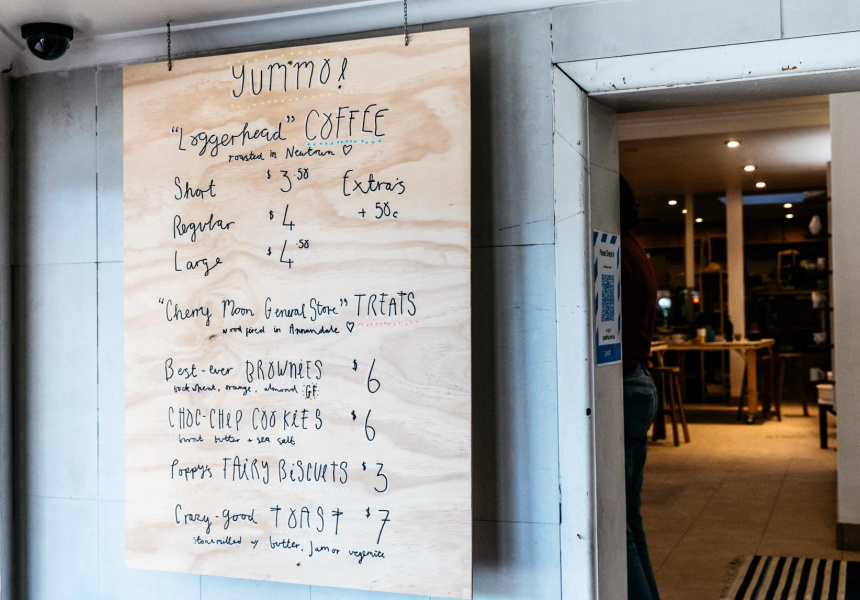 YUMMO!
"Loggerhead" COFFEE
roasted in Newtown ♡
Short $3.50 Extra's
+ 50c
Regular $4
Large $4.50
"Cherry Moon General Store" TREATS
wood fired in Annandale ♡
Best-ever BROWNIES $6
buckwheat, orange, almond GF
CHOC-CHIP COOKIES $6
burnt butter + sea salt
Poppy's FAIRY BISCUITS $3
Crazy-good TOAST $7
stonemilled w/ butter, jam or vegemite